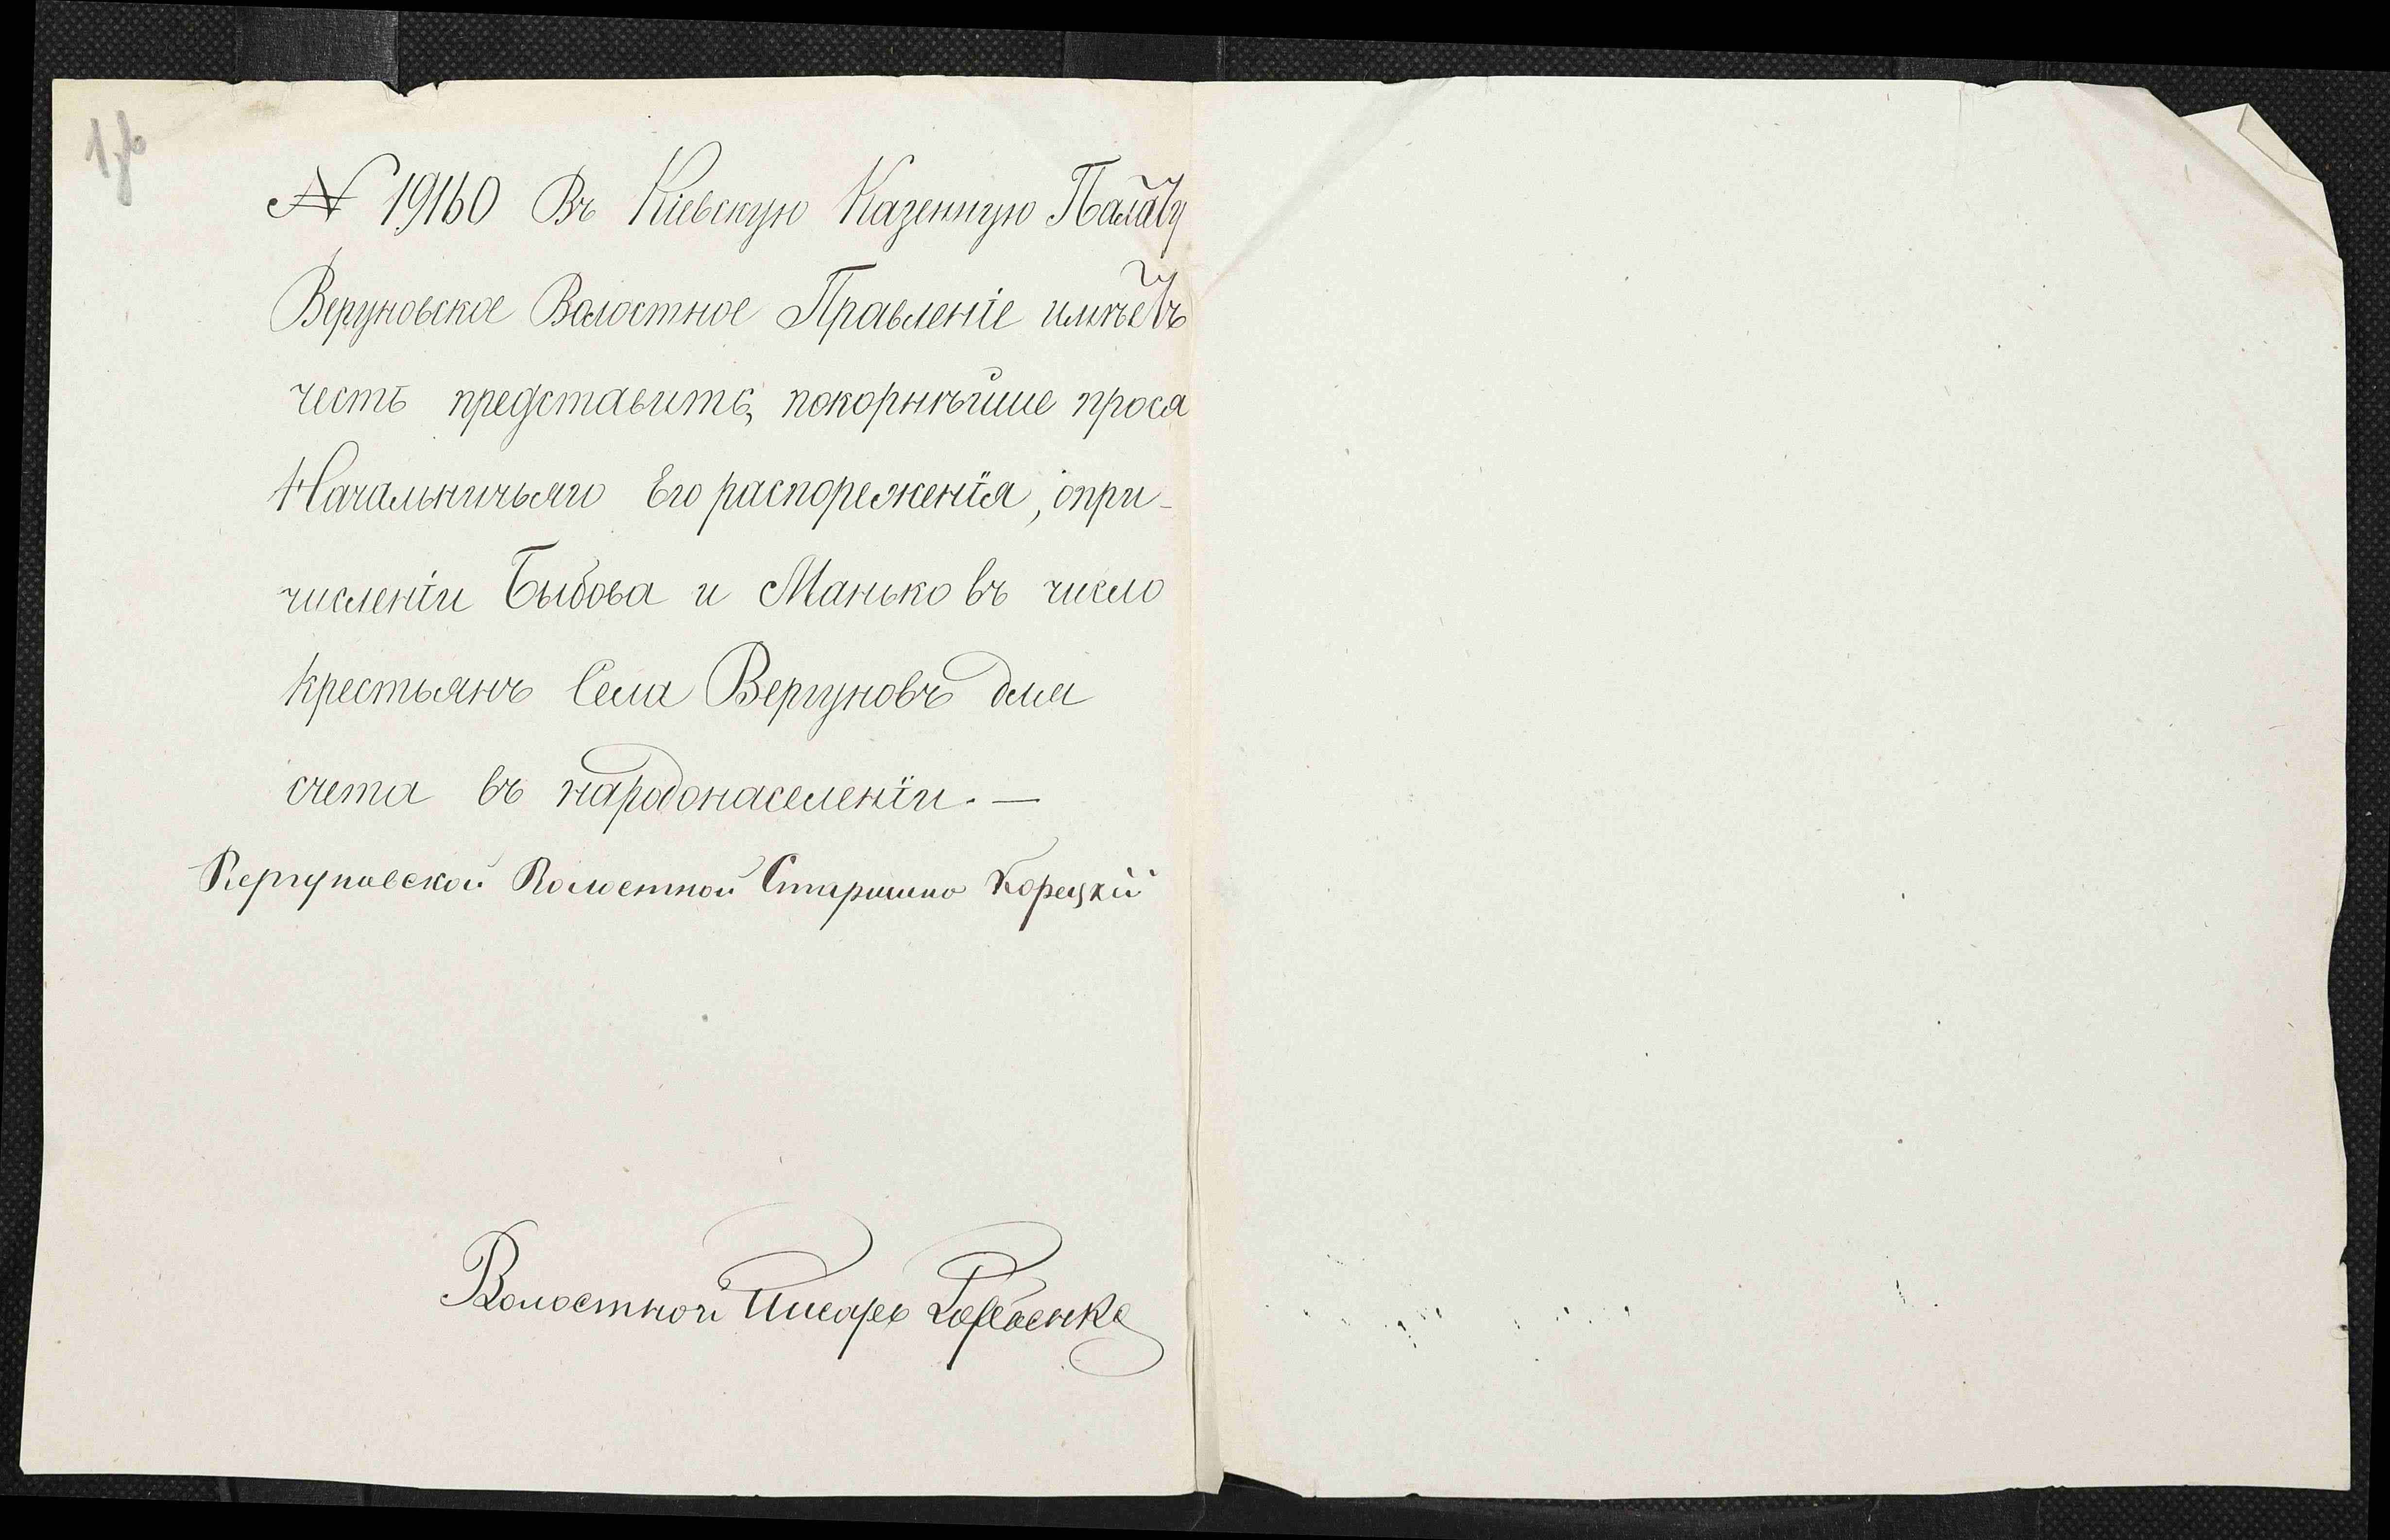 № 19160 Въ Кіевскую Казенную Палату
Вергуновское Волостное Правленіе имѣетъ
честь представить, покорнѣйше прося
Начальничьяго Его распореженія, опри-
численіи Быбова и Манько въ число
крестьянъ Села Вергуновъ для
счета въ народонаселеніи. —
Вергуновской Волостной Старшино Корецкій
Волостной Писарь